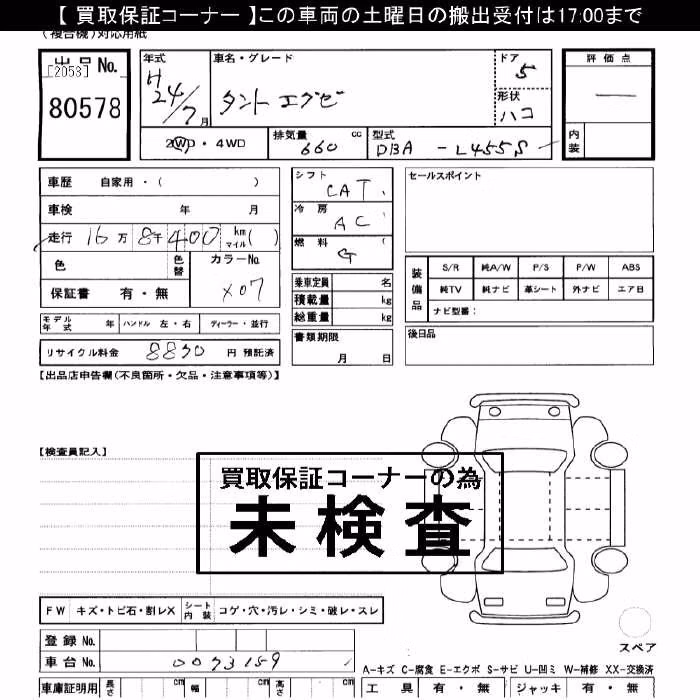 【 買取保証コーナー 】この車両の土曜日の搬出受付は17:00まで
(複合機)対応用紙
出品 No.
[2053]
80578
年式 H24/7月
車名・グレード
タント エグゼ
ドア 5
形状 ハコ
評価点
—
内装
2WD・4WD
排気量 660 cc
型式 DBA - L455S
車歴 自家用・( )
車検 年 月
走行 16万8千400 km マイル( )
色 色替 カラーNo. X07
保証書 有・無
シフト CAT
冷房 AC
燃料 G
乗車定員 名
積載量 kg
総重量 kg
セールスポイント
装備品 S/R 純A/W P/S P/W ABS
純TV 純ナビ 革シート 外ナビ エア日
ナビ型番：
モデル年式 年 ハンドル 左・右 ディーラー・並行
書類期限 月 日
後日品
リサイクル料金 8830 円 預託済
【出品店申告欄(不良箇所・欠品・注意事項等)】
【検査員記入】
買取保証コーナーの為
未検査
FW キズ・トビ石・割レX シート内装 コゲ・穴・汚レ・シミ・破レ・スレ
登録 No.
車台 No. 0073159
スペア
A-キズ C-腐食 E-エクボ S-サビ U-凹ミ W-補修 XX-交換済
車庫証明用 長さ cm 幅 cm 高さ cm
工具 有・無 ジャッキ 有・無